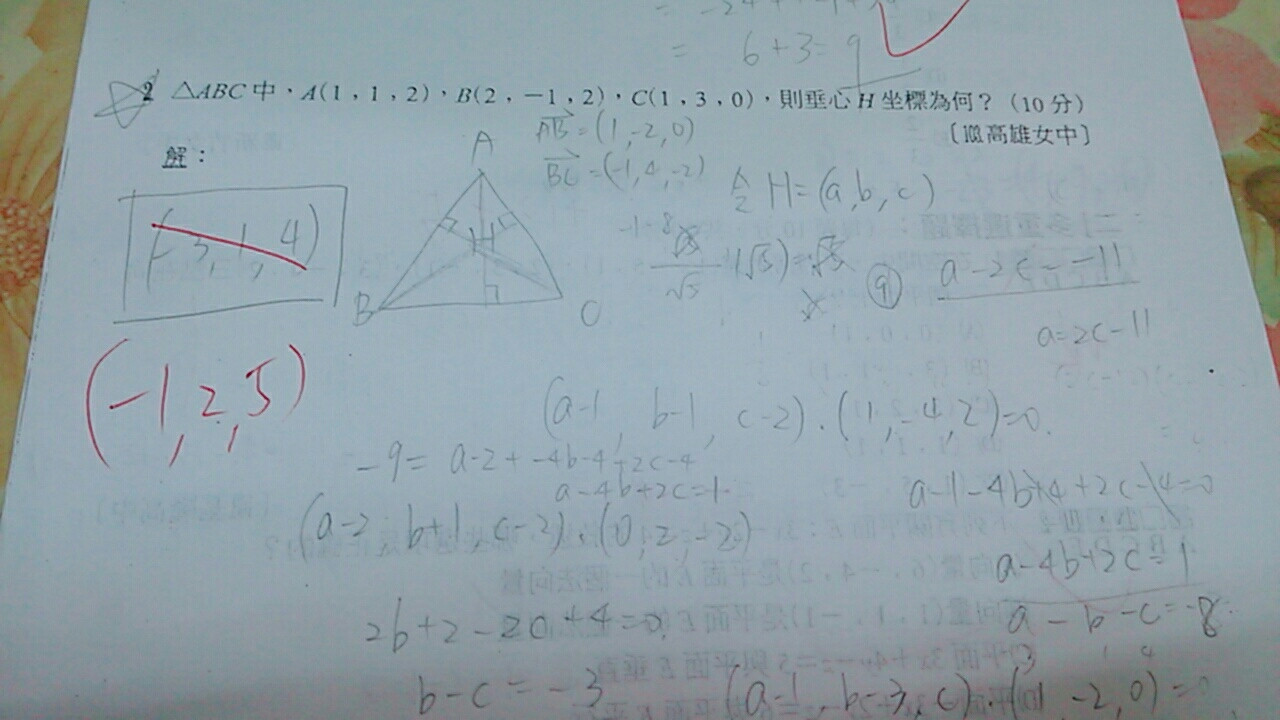 = 6+3=9
2 △ABC 中，A(1，1，2)，B(2，−1，2)，C(1，3，0)，則垂心 H 坐標為何？（10 分）
〔高雄女中〕
解：
AB=(1,-2,0)
BC=(-1,4,-2)
H=(a,b,c)
A
B
C
H
(-3,1,4)
(-1,2,5)
9
a-2c=-11
a=2c-11
(a-1, b-1, c-2).(1,-4,2)=0.
-9= a-2+-4b-4+2c-4
a-4b+2c=1
a-1-4b+4+2c-4=0
(a-2, b+1, c-2).(0,2,-2)
a-4b+2c=1
2b+2-2c+4=0
a-b-c=-8
b-c=-3
(a-1, b-3, c).(1,-2,0)=0